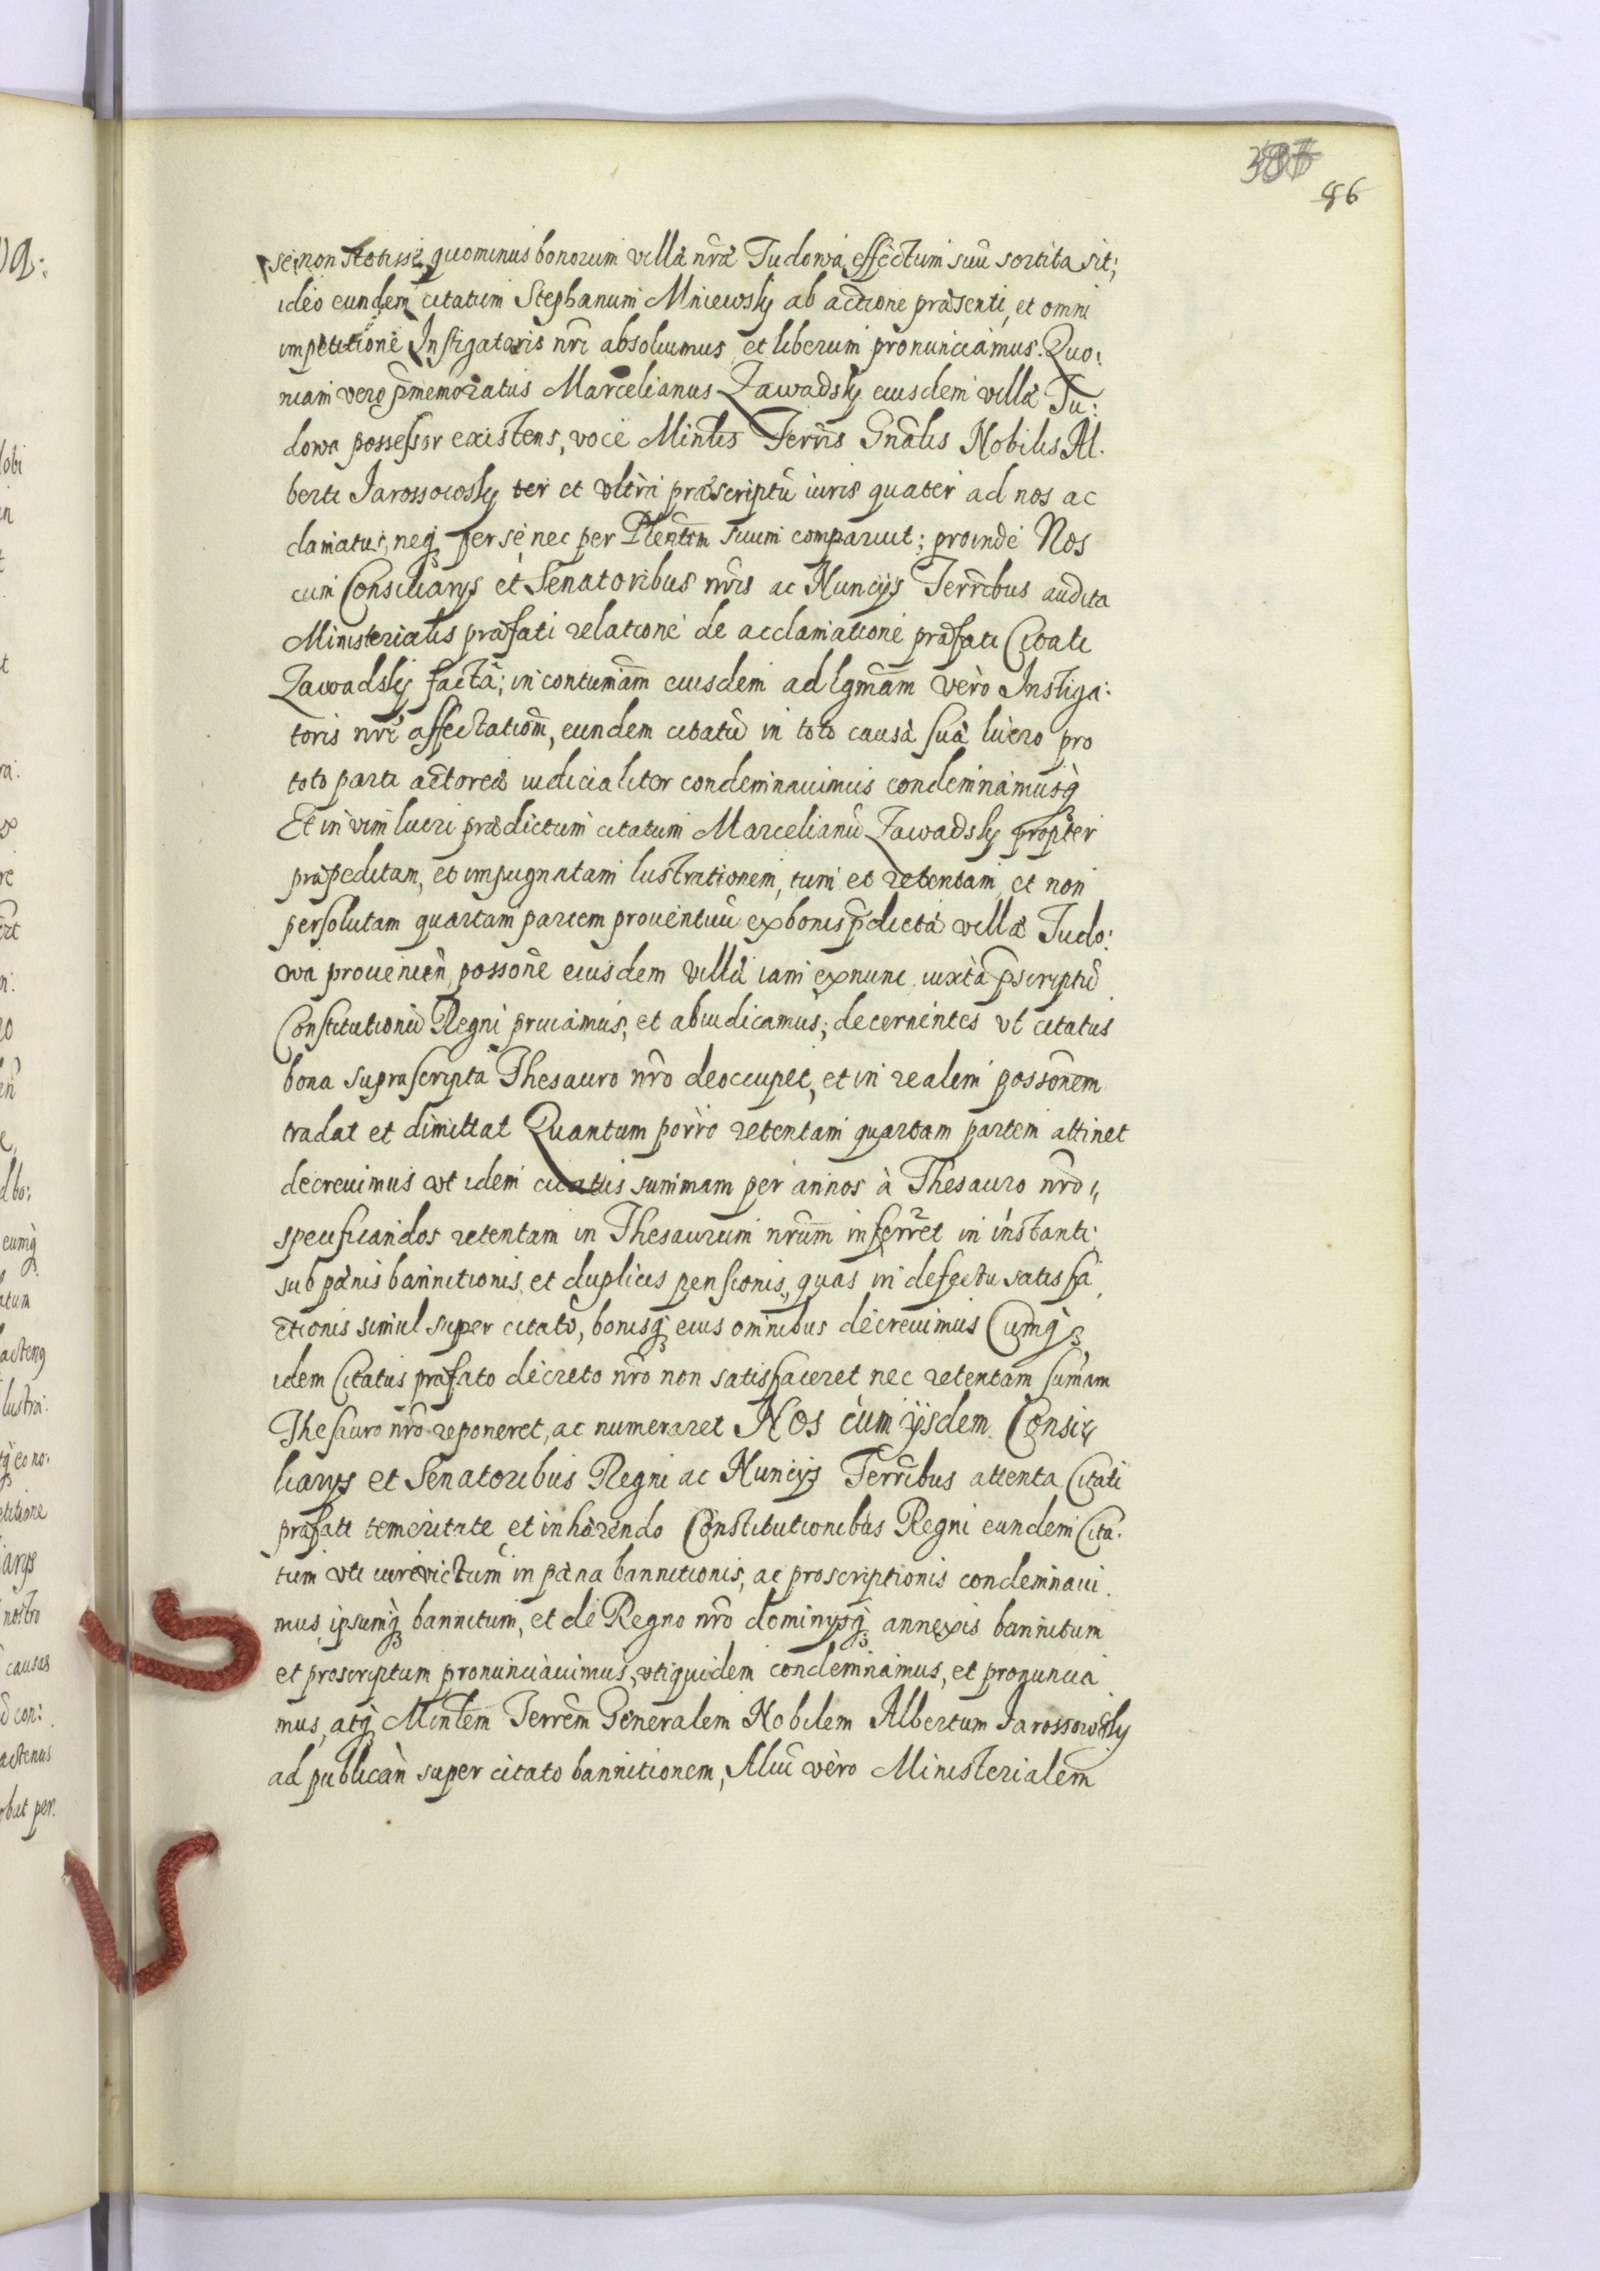 86
se non stetisse, quominus bonorum villæ nr̃æ Tudowa effectum suũ sortita sit;
ideo eundem citatum Stephanum Mniewsky ab actione præsenti, et omni
impetitione Instigatoris nr̃i absoluimus et liberum pronunciamus. Quo:
niam vero p̃memoratus Marcelianus Zawadsky eiusdem villæ Tu:
dowa possessor existens, voce Minlis Terr̃is Gnãlis Nobilis Al.
berti Jarossowsky ter et vltra præscriptũ iuris quater ad nos ac
clamatus, neq₃ per se, nec per Plentẽm suum comparuit; proinde Nos
cum Consiliarys et Senatoribus nr̃is ac Nuncijs Terr̃ibus audita
Ministerialis præfati relatione de acclamatione præfati Citati
Zawadsky facta; in contumãm eiusdem ad lgmãm vero Instiga:
toris nr̃i affectationẽ, eundem citatũ in toto causa sua lucro pro
toto parti actoreæ iudicialiter condemnauimus condemnamusq₃
Et in vim lucri prædictum citatum Marcelianũ Zawadsky propter
præpeditam, et impugnatam lustrationem, tum et retentam et non
persolutam quartam partem prouentuũ ex bonis p̃dictæ villæ Tudo:
wa prouenien possone eiusdem villæ iam ex nunc iuxta p̃scriptũ
Constitutionũ Regni priuamus, et abiudicamus; decernentes vt citatus
bona suprascripta Thesauro nr̃o deoccupet, et in realem possonẽm
tradat et dimittat Quantum porro retentam quartam partem attinet
decreuimus vt idem citatus summam per annos à Thesauro nr̃o
specificandos retentam in Thesaurum nr̃um inferret in instanti
sub pænis bannitionis et duplicis pensionis, quas in defectu satisfa
ctionis simul super citato, bonisq₃ eius omnibus decreuimus Cumq₃
idem Citatus præfato decreto nr̃o non satisfaceret nec retentam sum̃am
Thesauro nr̃o reponeret, ac numeraret Nos cum ijsdem Consi
liarys et Senatoribus Regni ac Nuncijs Terr̃ibus attenta Citati
præfati temeritate et inhærendo Constitutionibus Regni eundem Cita:
tum vti iurevictum in pæna bannitionis, ac proscriptionis condemnaui
mus, ipsumq₃ bannitum, et de Regno nr̃o dominysq₃ annexis bannitum
et proscriptum pronunciauimus, vtiquidem condemnamus, et pronuncia
mus, atq₃ Minlem Terr̃em Generalem Nobilem Albertum Jarossowsky
ad publican super citato bannitionem, Aliũ vero Ministerialem